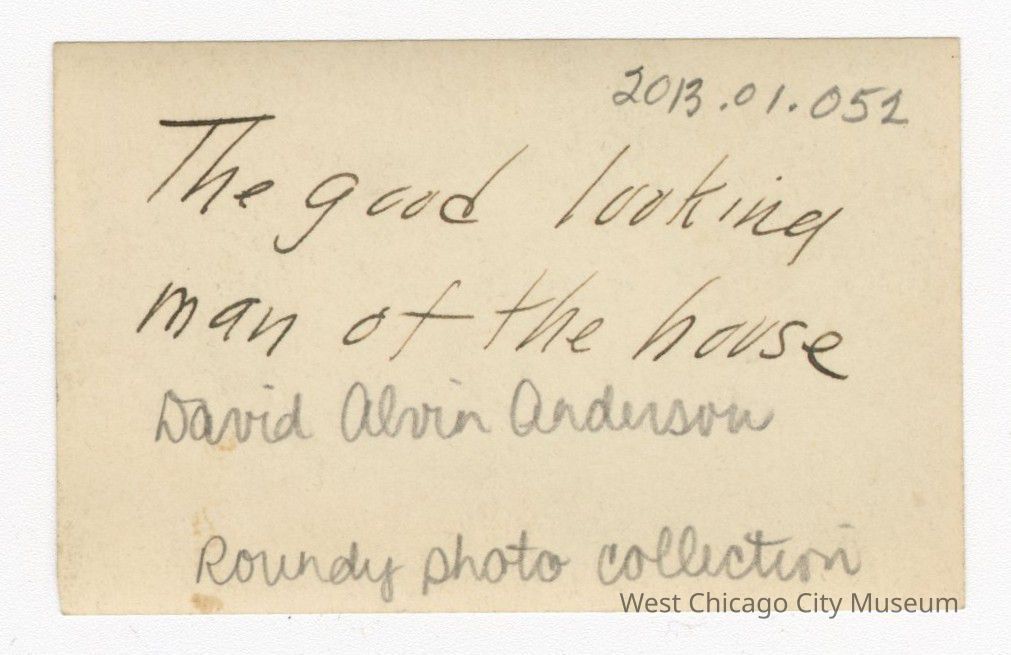 2013.01.052
The good looking
man of the house
David Alvin Anderson
Roundy photo collection
West Chicago City Museum